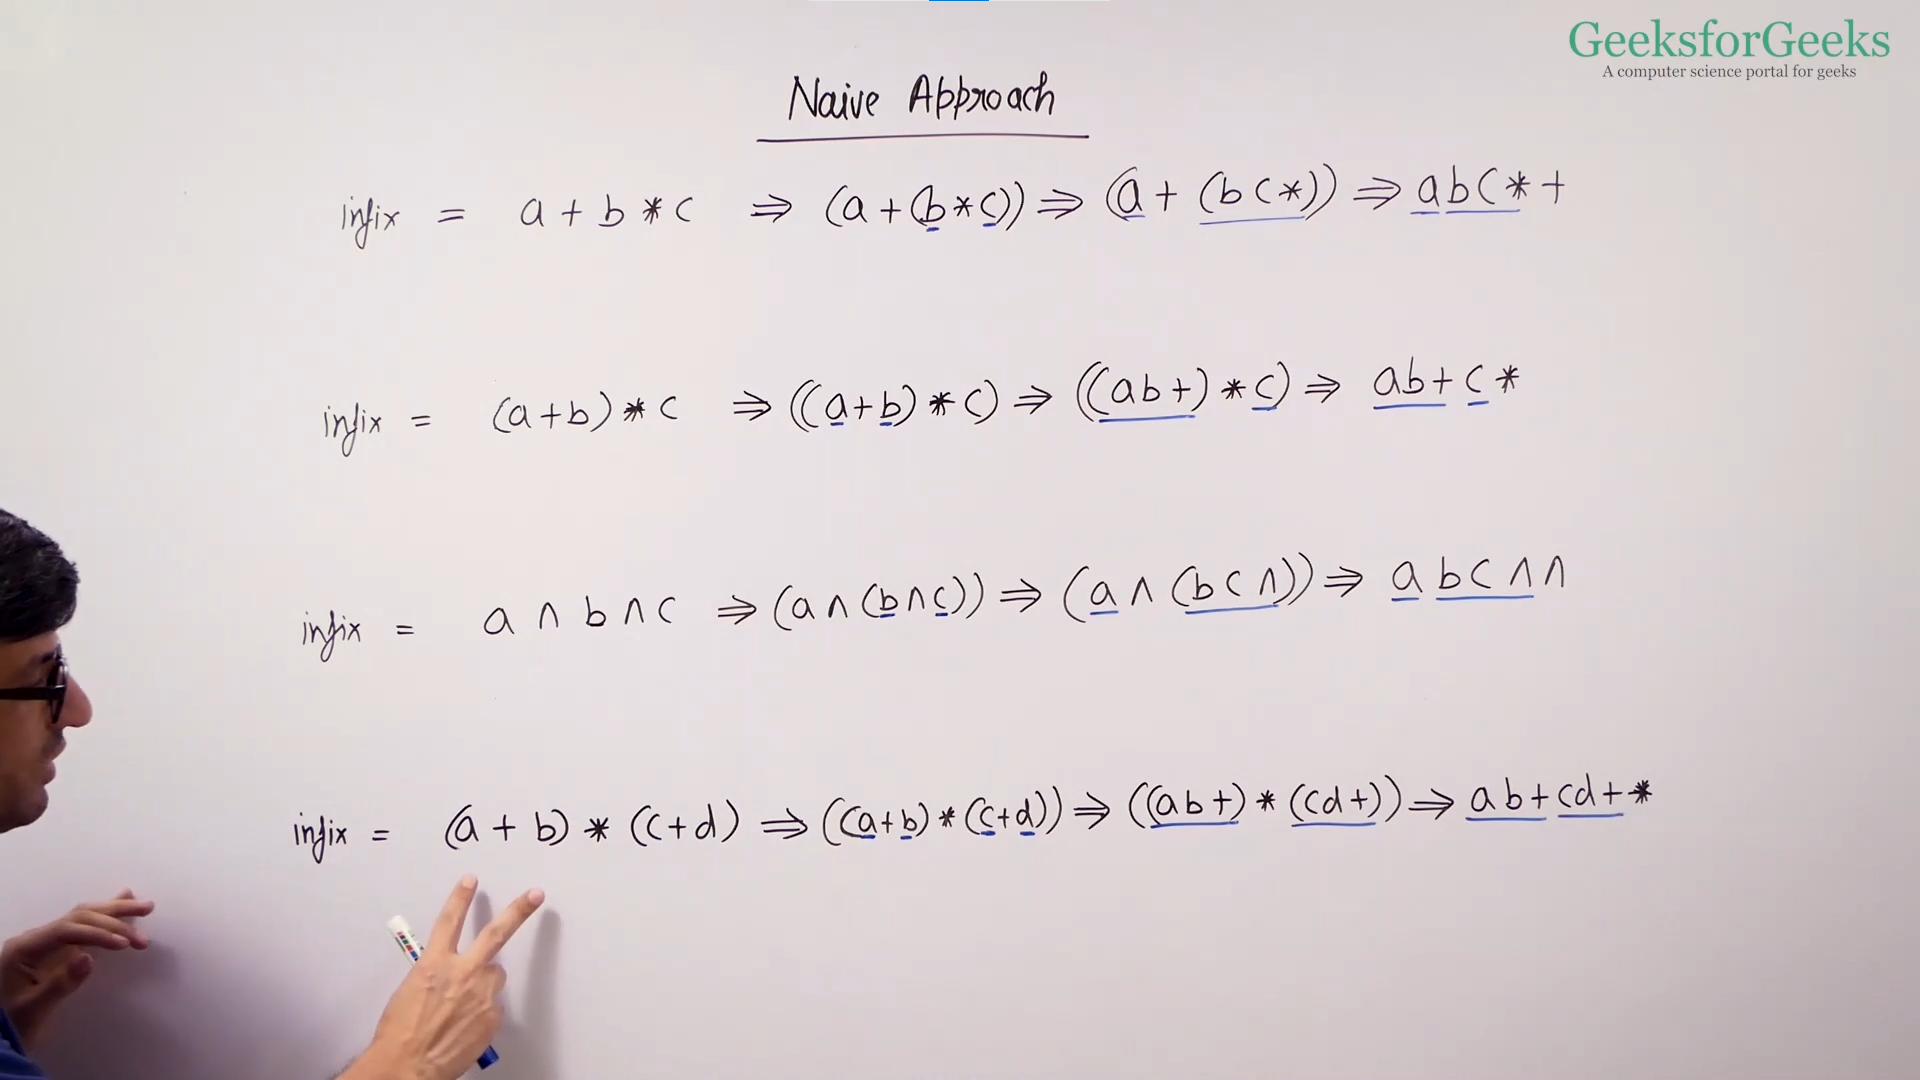 GeeksforGeeks
A computer science portal for geeks
Naive Approach
infix = a + b * c ⇒ (a + (b * c)) ⇒ (a + (b c *)) ⇒ a b c * +
infix = (a + b) * c ⇒ ((a + b) * c) ⇒ ((a b +) * c) ⇒ a b + c *
infix = a ∧ b ∧ c ⇒ (a ∧ (b ∧ c)) ⇒ (a ∧ (b c ∧)) ⇒ a b c ∧ ∧
infix = (a + b) * (c + d) ⇒ ((a + b) * (c + d)) ⇒ ((a b +) * (c d +)) ⇒ a b + c d + *